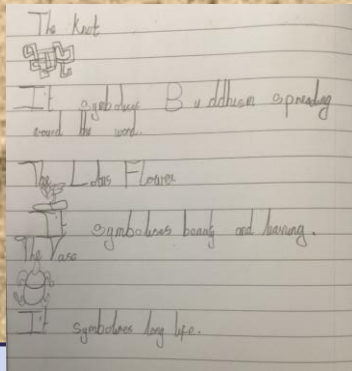 The Knot
It symbolises Buddhism spreading
around the word.
The Lotus Flower
It symbolises beauty and learning.
The Vase
It symbolises long life.